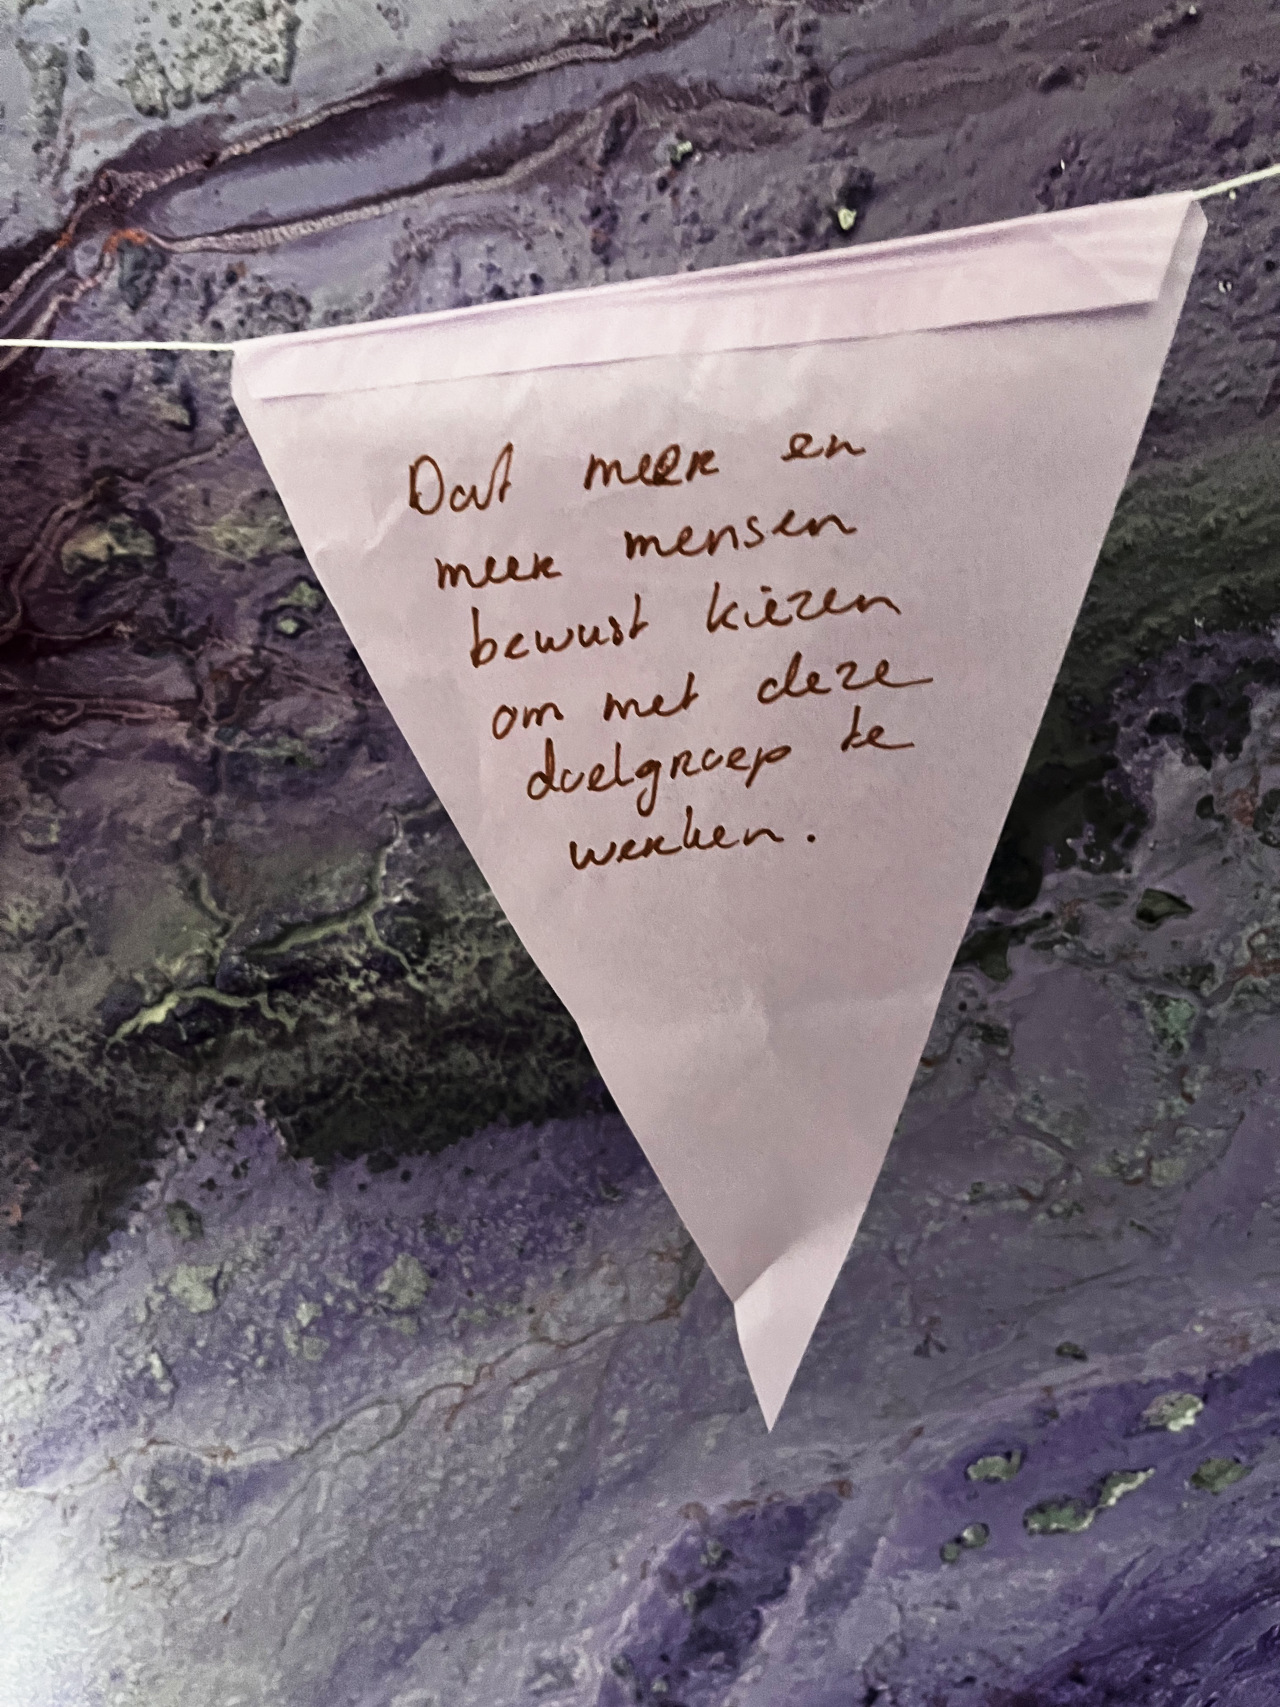 Dat meer en
meer mensen
bewust kiezen
om met deze
doelgroep te
werken.